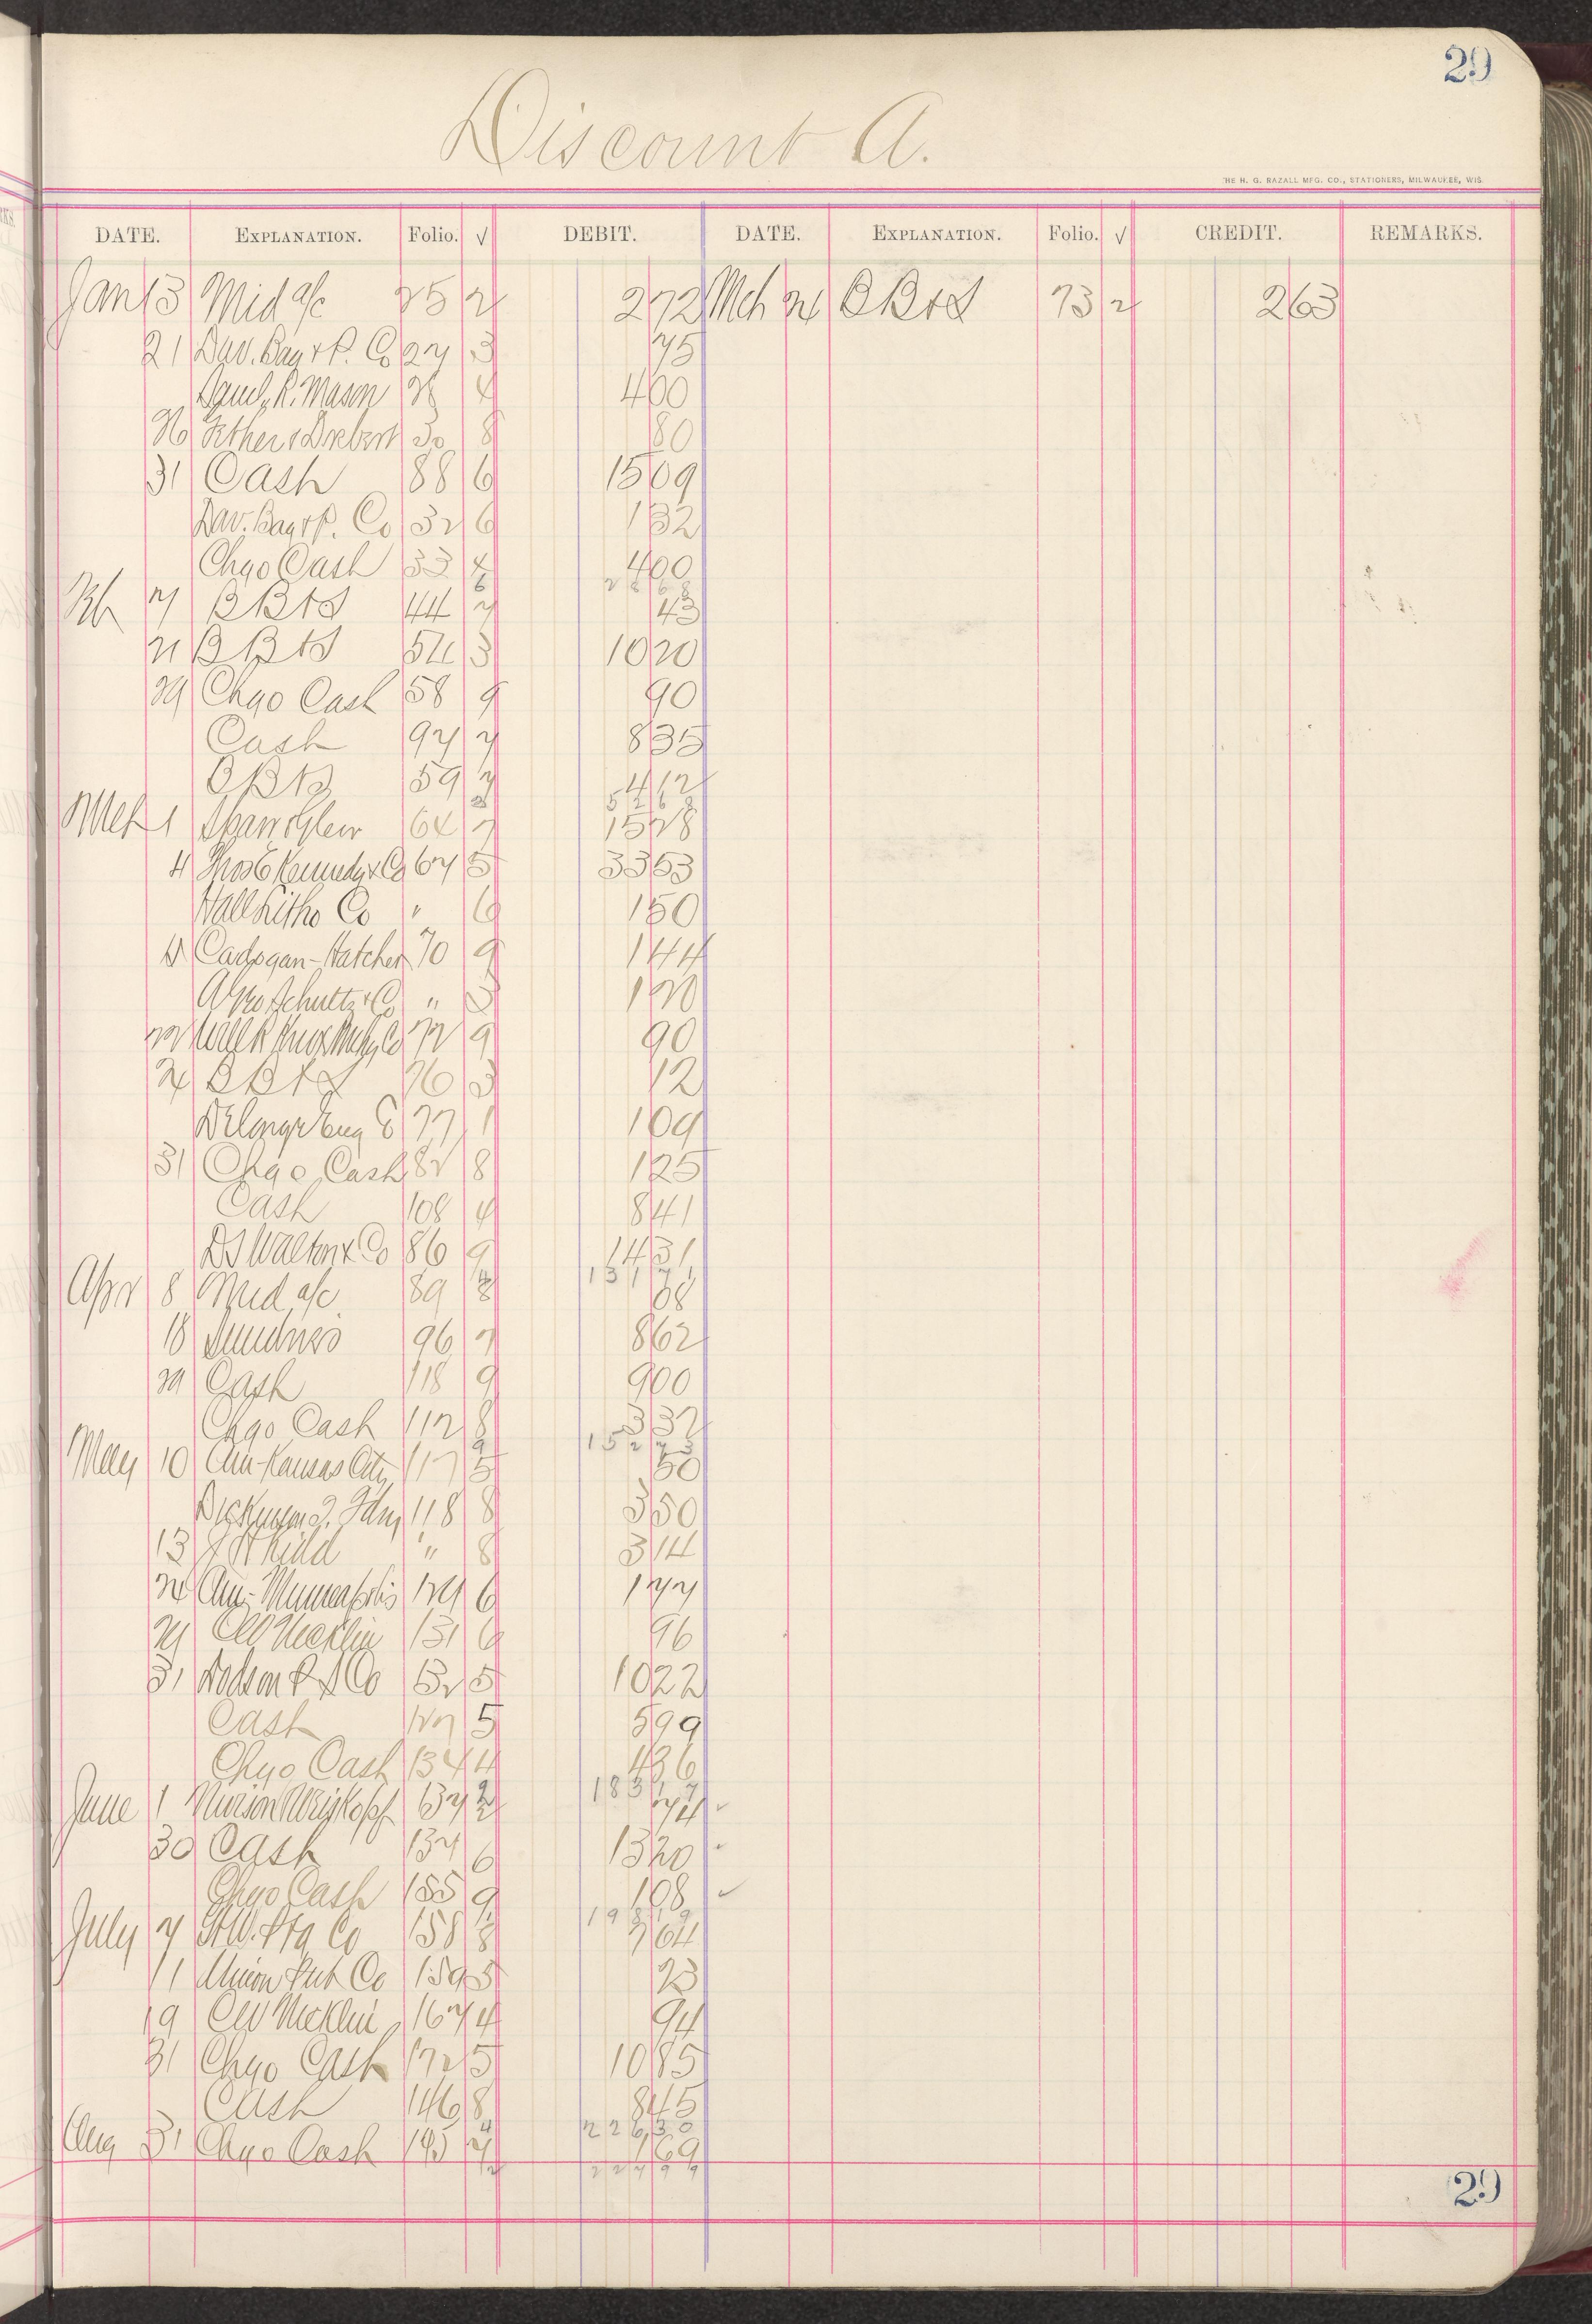 29
Discount A.
THE H. G. RAZALL MFG. CO., STATIONERS, MILWAUKEE, WIS.
DATE. EXPLANATION. Folio. √ DEBIT. DATE. EXPLANATION. Folio. √ CREDIT. REMARKS.
Jan 13 Mid a/c 25 2 272 Mch 24 BB&S 73 2 263
21 Dav. Bag & P. Co 27 3 75
Saml. R. Mason 28 4 400
26 30 8 80
31 Cash 88 6 1509
Dav. Bag & P. Co 32 6 132
Chgo Cash 33 4 400
6 2868
7 BB&S 44 7 43
21 BB&S 54 3 1020
29 Chgo Cash 58 9 90
Cash 97 7 835
BB&S 59 7 412
5268
Mch 1 64 7 1528
4 Thos E Kennedy & Co 67 5 3353
Hall Litho Co " 6 150
Cadogan-Hatcher 70 9 144
Schultz & Co " 3 120
22 72 9 90
24 BB&S 76 3 12
77 1 109
31 Chgo Cash 82 8 125
Cash 108 4 841
DS Walton & Co 86 9 1431
13171
Apr 8 Mid a/c 89 8 08
18 Sundries 96 7 862
29 Cash 118 9 900
Chgo Cash 112 8 332
9 15273
May 10 Am-Kansas City 117 5 50
118 8 350
13 Kidd " 8 314
24 Am-Minneapolis 124 6 177
27 CW Mecklin 131 6 96
31 Dodson P S Co 132 5 1022
Cash 127 5 599
Chgo Cash 134 4 436
18317
June 1 137 2 74 ✓
30 Cash 137 6 1320 ✓
Chgo Cash 155 9 108 ✓
19819
July 7 Co 158 8 764
11 Union Pub Co 159 5 23
19 CW Mecklin 167 4 94
31 Chgo Cash 172 5 1085
Cash 146 8 845
4 22630
Aug 31 Chgo Cash 195 7 169
2 22799
29